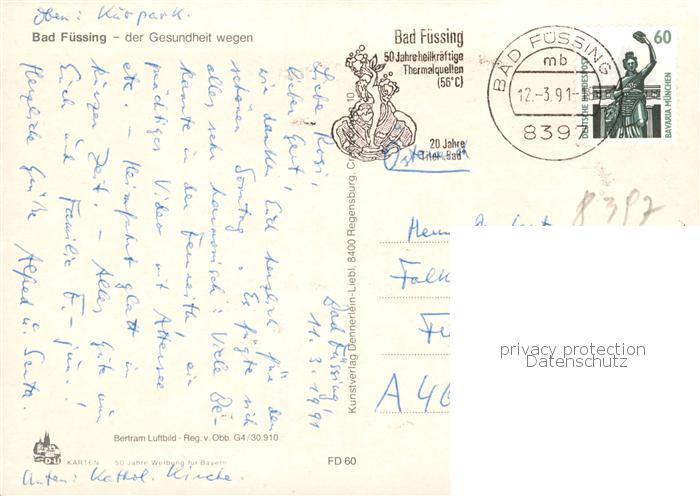 Oben: Kurpark.
Bad Füssing – der Gesundheit wegen
Bad Füssing, 11.3.1991
Liebe Rosi,
lieber Gert!
wir danken Euch herzlich für den
schönen Sonntag. Es fügte sich
alles sehr harmonisch: Viele Be-
kannte in der Fernreith, ein
prächtiges Video mit Attersee
etc – Heimfahrt glatt in
kurzer Zeit. – Alles Gute um
Euch und Familie F. – jun.!
Herzliche Grüße Alfred u. Senta.
Bertram Luftbild · Reg. v. Obb. G4/30.910
KARTEN 50 Jahre Werbung für Bayern
FD 60
Unten: Kathol. Kirche.
Kunstverlag Dennerlein-Liebl. 8400 Regensburg.
Bad Füssing
50 Jahre heilkräftige
Thermalquellen
(56°C)
20 Jahre
Titel "Bad"
BAD FÜSSING
mb
12.-3.91-
8397
60
DEUTSCHE BUNDESPOST
BAVARIA MÜNCHEN
8397
Österreich
Herrn
A 46
privacy protection
Datenschutz